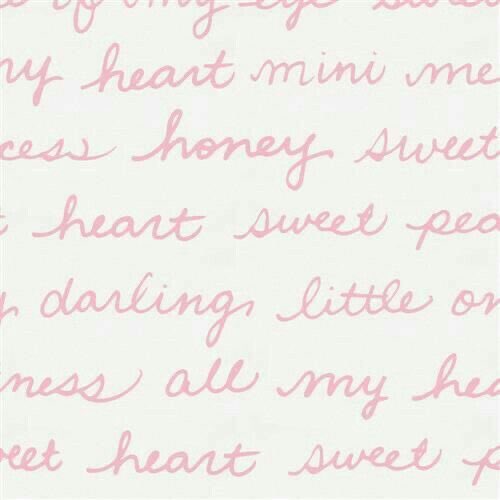 of my eye sweet
my heart mini me
cess honey sweet
t heart sweet pea
y darling little on
ness all my hea
weet heart sweet p